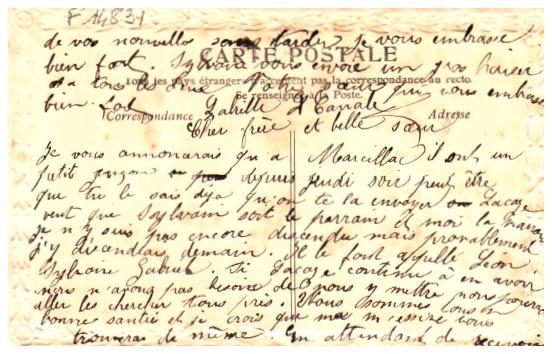 F 14831
de vos nouvelles sans tarder je vous embrasse
bien fort. Sylvain vous envoie un gros baiser
a tous les deux Votre sœur qui vous embrasse
bien fort
CARTE POSTALE
Tous les pays étrangers n'acceptent pas la correspondance au recto.
Se renseigner à la Poste.
Correspondance
Adresse
Cher frère et belle sœur
Je vous annoncerais qu'a Marcillac il ont un
petit depuis jeudi soir peut être
que tu le sais deja qu'on te la envoyer Lacaze
veut que Sylvain soit le parrain et moi la
je n'y suis pas encore descendu mais probablement
j'y descendrais demain. Il le font appelle Léon
Gabriel Si Lacaze continu à en avoir
nous n'avons pas besoin de nous y mettre nous pourrons
aller les chercher tous près. Nous sommes tous en
bonne santée et je crois que ma vous
trouveras de même. En attendant de recevoir